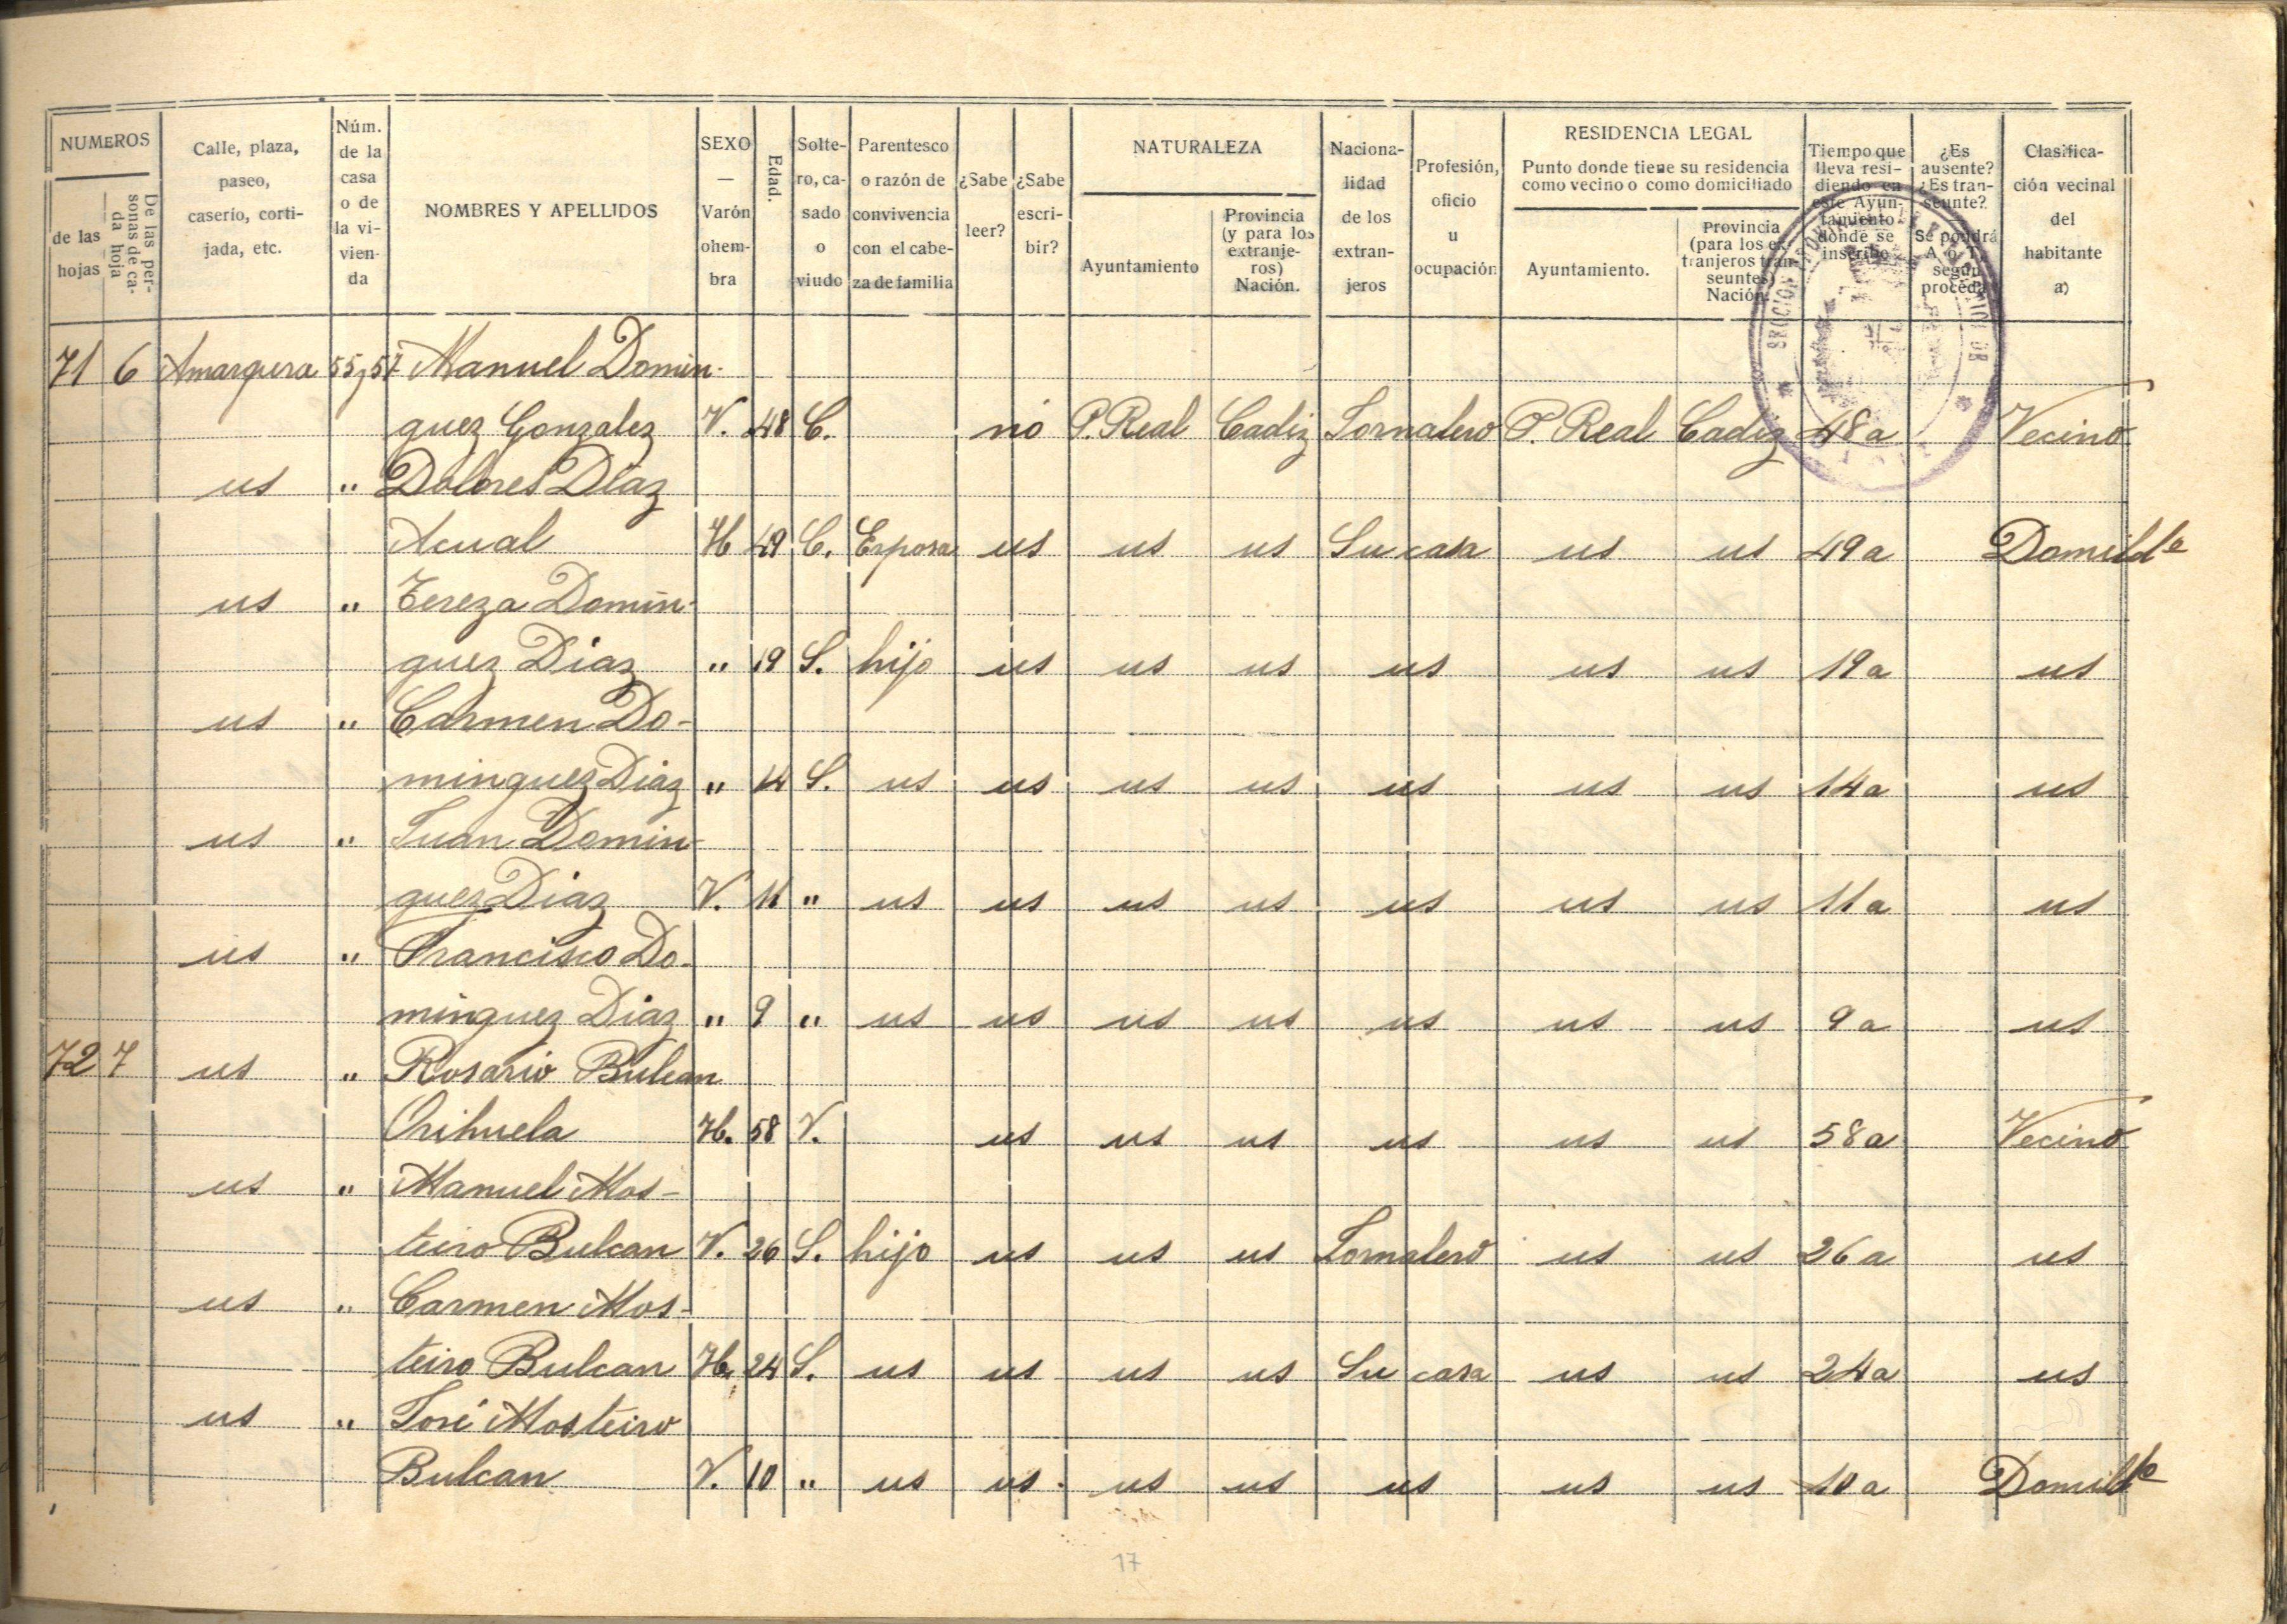 NUMEROS
de las hojas
De las personas de cada hoja
Calle, plaza, paseo, caserio, cortijada, etc.
Núm. de la casa o de la vivienda
NOMBRES Y APELLIDOS
SEXO — Varón ohembra
Edad.
Soltero, casado o viudo
Parentesco o razón de convivencia con el cabeza de familia
¿Sabe leer?
¿Sabe escribir?
NATURALEZA
Ayuntamiento
Provincia (y para los extranjeros) Nación.
Nacionalidad de los extranjeros
Profesión, oficio u ocupación
RESIDENCIA LEGAL
Punto donde tiene su residencia como vecino o como domiciliado
Ayuntamiento.
Provincia (para los extranjeros transeuntes) Nación.
Tiempo que lleva residiendo en este Ayuntamiento donde se inscribe
¿Es ausente? ¿Es transeunte? Se pondrá A o T según proceda
Clasificación vecinal del habitante a)
71 6 Amargura 55y57 Manuel Domin-
guez Gonzalez V. 48 C. no P. Real Cadiz Jornalero P. Real Cadiz 48 a Vecino
us " Dolores Diaz
Acual H 49 C. Esposa us us us Su casa us us 49 a Domildª
us " Tereza Domin-
guez Diaz " 19 S. hijo us us us us us us 19 a us
us " Carmen Do-
minguez Diaz " 14 S. us us us us us us us 14 a us
us " Juan Domin-
guez Diaz V. 11 " us us us us us us us 11 a us
us " Francisco Do-
minguez Diaz " 9 " us us us us us us us 9 a us
72 7 us " Rosario Bulcan
Orihuela H. 58 V. us us us us us us 58 a Vecino
us " Manuel Mos-
teiro Bulcan V. 26 S. hijo us us us Jornalero us us 26 a us
us " Carmen Mos-
teiro Bulcan H. 24 S. us us us us Su casa us us 24 a us
us " José Mosteiro
Bulcan V. 10 " us us us us us us us 10 a Domildº
17